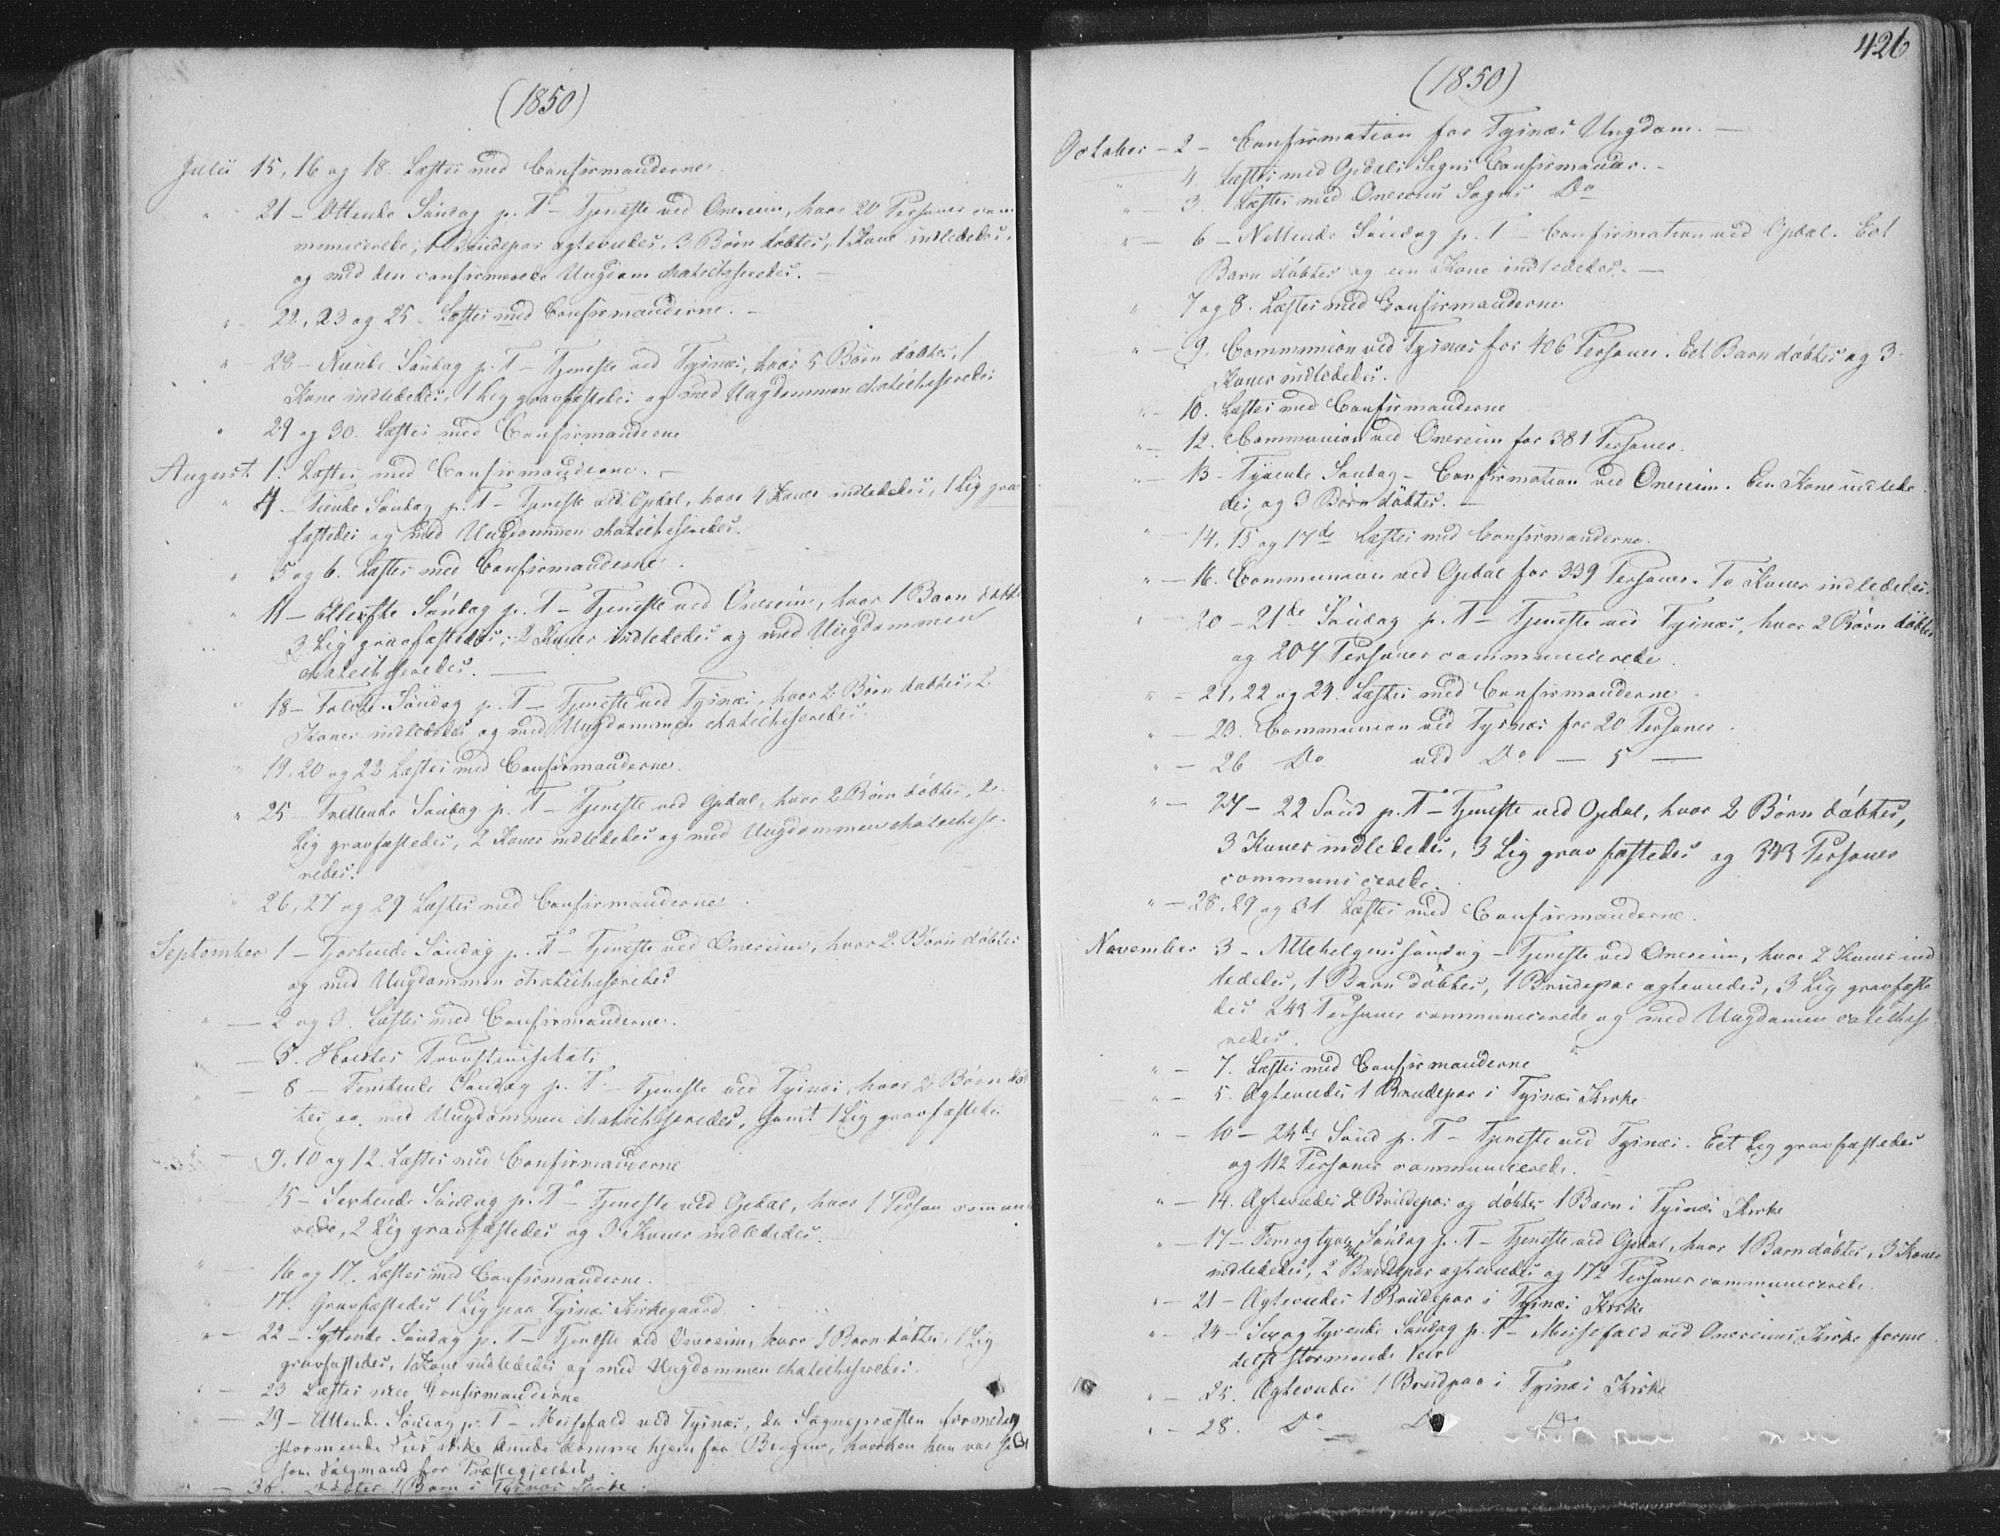 (1850)
Julii 15, 16 og 18. Læstes med Confirmanderne.
" 21 – Ottende Søndag p. T – Tjeneste ved Onereim, hvor 20 Personer com-
municerede, 1 Brudepar ægteviedes, 3 Børn døbtes, 1 Kone indlededes,
og med den confirmerede Ungdom chatechiseredes. –
" 22, 23 og 25 – Læstes med Confirmanderne. –
" 28 – Niende Søndag p. T – Tjeneste ved Tysnæs, hvor 5 Børn døbtes, 1
Kone indlededes, 1 Lig gravfæstedes og med Ungdommen chatechiseredes
" 29 og 30. Læstes med Confirmanderne
August 1. Læstes med Confirmanderne. –
" 4. Tiende Søndag p. T – Tjeneste ved Opdal, hvor 4 Koner indlededes, 1 Lig grav
fæstedes og med Ungdommen chatechiseredes.
" 5 og 6. Læstes med Confirmanderne.
" 11 – Ellevfte Søndag p. T – Tjeneste ved Onereim, hvor 1 Barn døbtes
3 Lig gravfæstedes, 2 Koner indlededes og med Ungdommen
chatechiseredes. –
" 18 – Tolvte Søndag p. T – Tjeneste ved Tysnæs, hvor 2 Børn døbtes, 2
Koner indlededes og med Ungdommen chatechiseredes.
" 19, 20 og 22 Læstes med Confirmanderne.
" 25 – Trettende Søndag p. T – Tjeneste ved Opdal, hvor 2 Børn døbtes, 2
Lig gravfæstedes, 2 Koner indlededes og med Ungdommen chatechise-
redes.
" 26, 27 og 29 Læstes med Confirmanderne.
September 1 – Fjortende Søndag p. T – Tjeneste ved Onereim, hvor 2 Børn døbtes
og med Ungdommen chatechiseredes
" – 2 og 3. Læstes med Confirmanderne.
" – 5. Holdtes Provstevisitats
" – 8 – Femtende Søndag p. T. – Tjeneste ved Tysnæs, hvor 2 Børn døb
tes og med Ungdommen chatechiseredes, samt 1 Lig gravfæstedes
" – 9, 10 og 12. Læstes med Confirmanderne
" – 15 – Sextende Søndag p. T – Tjeneste ved Opdal, hvor 1 Person commun
rede, 2 Lig gravfæstedes og 3 Koner indlededes. –
" – 16 og 17. Læstes med Confirmanderne.
" 17. Gravfæstedes 1 Lig paa Tysnæs Kirkegaard.
" – 22 – Syttende Søndag p. T – Tjeneste ved Onereim, hvor 1 Barn døbtes, 1 Lig
gravfæstedes, 1 Kone indlededes og med Ungdommen chatechiseredes.
" – 23 Læstes med Confirmanderne
" – 29 – Attend. Søndag p. T – Messefald ved Tysnæs, da Sognepræsten formedelst
stormende Veir ikke kunde komme hjem fra Bergen, hvorhen han var
som Valgmand for Præstegjeldet
" – 30. Døbtes 1 Barn i Tysnæs Kirke.
426
(1850)
October – 2 – Confirmation for Tysnæs Ungdom. –
" – 4. Læstes med Opdals Sogns Confirmander. –
" – 3. Læstes med Onereims Sogns Do
" – 6 – Nittende Søndag p. T – Confirmation ved Opdal. Eet
Barn døbtes og een Kone indlededes. –
" 7 og 8. Læstes med Confirmanderne
" – 9. Communion ved Tysnæs for 406 Personer. Eet Barn døbtes og 3
Koner indlededes.
" – 10. Læstes med Confirmanderne
" – 12. Communion ved Onereim for 381 Personer.
" – 13 – Tyvende Søndag – Confirmation ved Onereim. Een Kone indlede
des og 3 Børn døbtes. –
" – 14, 15 og 17de Læstes med Confirmanderne.
" – 16. Communion ved Opdal for 339 Personer. To Koner indlededes.
" – 20 – 21de Søndag p. T – Tjeneste ved Tysnæs, hvor 2 Børn døbtes
og 207 Personer communicerede.
" – 21, 22 og 24. Læstes med Confirmanderne
" – 23. Communion ved Tysnæs for 20 Personer.
" – 26 Do ved Do – 5 –
" – 27 – 22 Sønd p. T – Tjeneste ved Opdal, hvor 2 Børn døbtes,
3 Koner indlededes, 3 Lig gravfæstedes og 343 Personer
communicerede.
" – 28, 29 og 31 Læstes med Confirmanderne.
November 3 – Allehelgenssøndag – Tjeneste ved Onereim, hvor 2 Koner ind
lededes, 1 Barn døbtes, 1 Brudepar ægteviedes, 3 Lig gravfæste
des 243 Personer communicerede og med Ungdomen catechise
redes.
" – 7. Læstes med Confirmanderne
" – 5. Ægteviedes 1 Brudepar i Tysnæs Kirke
" – 10 – 24de Sønd p. T – Tjeneste ved Tysnæs. Eet Lig gravfæstedes
og 112 Personer communicerede.
" – 14. Ægteviedes 2 Brudepar og døbtes 1 Barn i Tysnæs Kirke
" – 17 – Fem og tyvende Søndag p. T – Tjeneste ved Opdal, hvor 1 Barn døbtes, 3 Koner
indlededes, 2 Brudepar ægteviedes og 172 Personer communicerede
" – 21 – Ægteviedes 1 Brudepar i Tysnæs Kirke
" – 24 – Sex og tyvende Søndag p. T – Messefald ved Onereims Kirke forme
delst stormende Veir
" – 25. Ægteviedes 1 Brudpar i Tysnæs Kirke
" – 28. Do Do Do